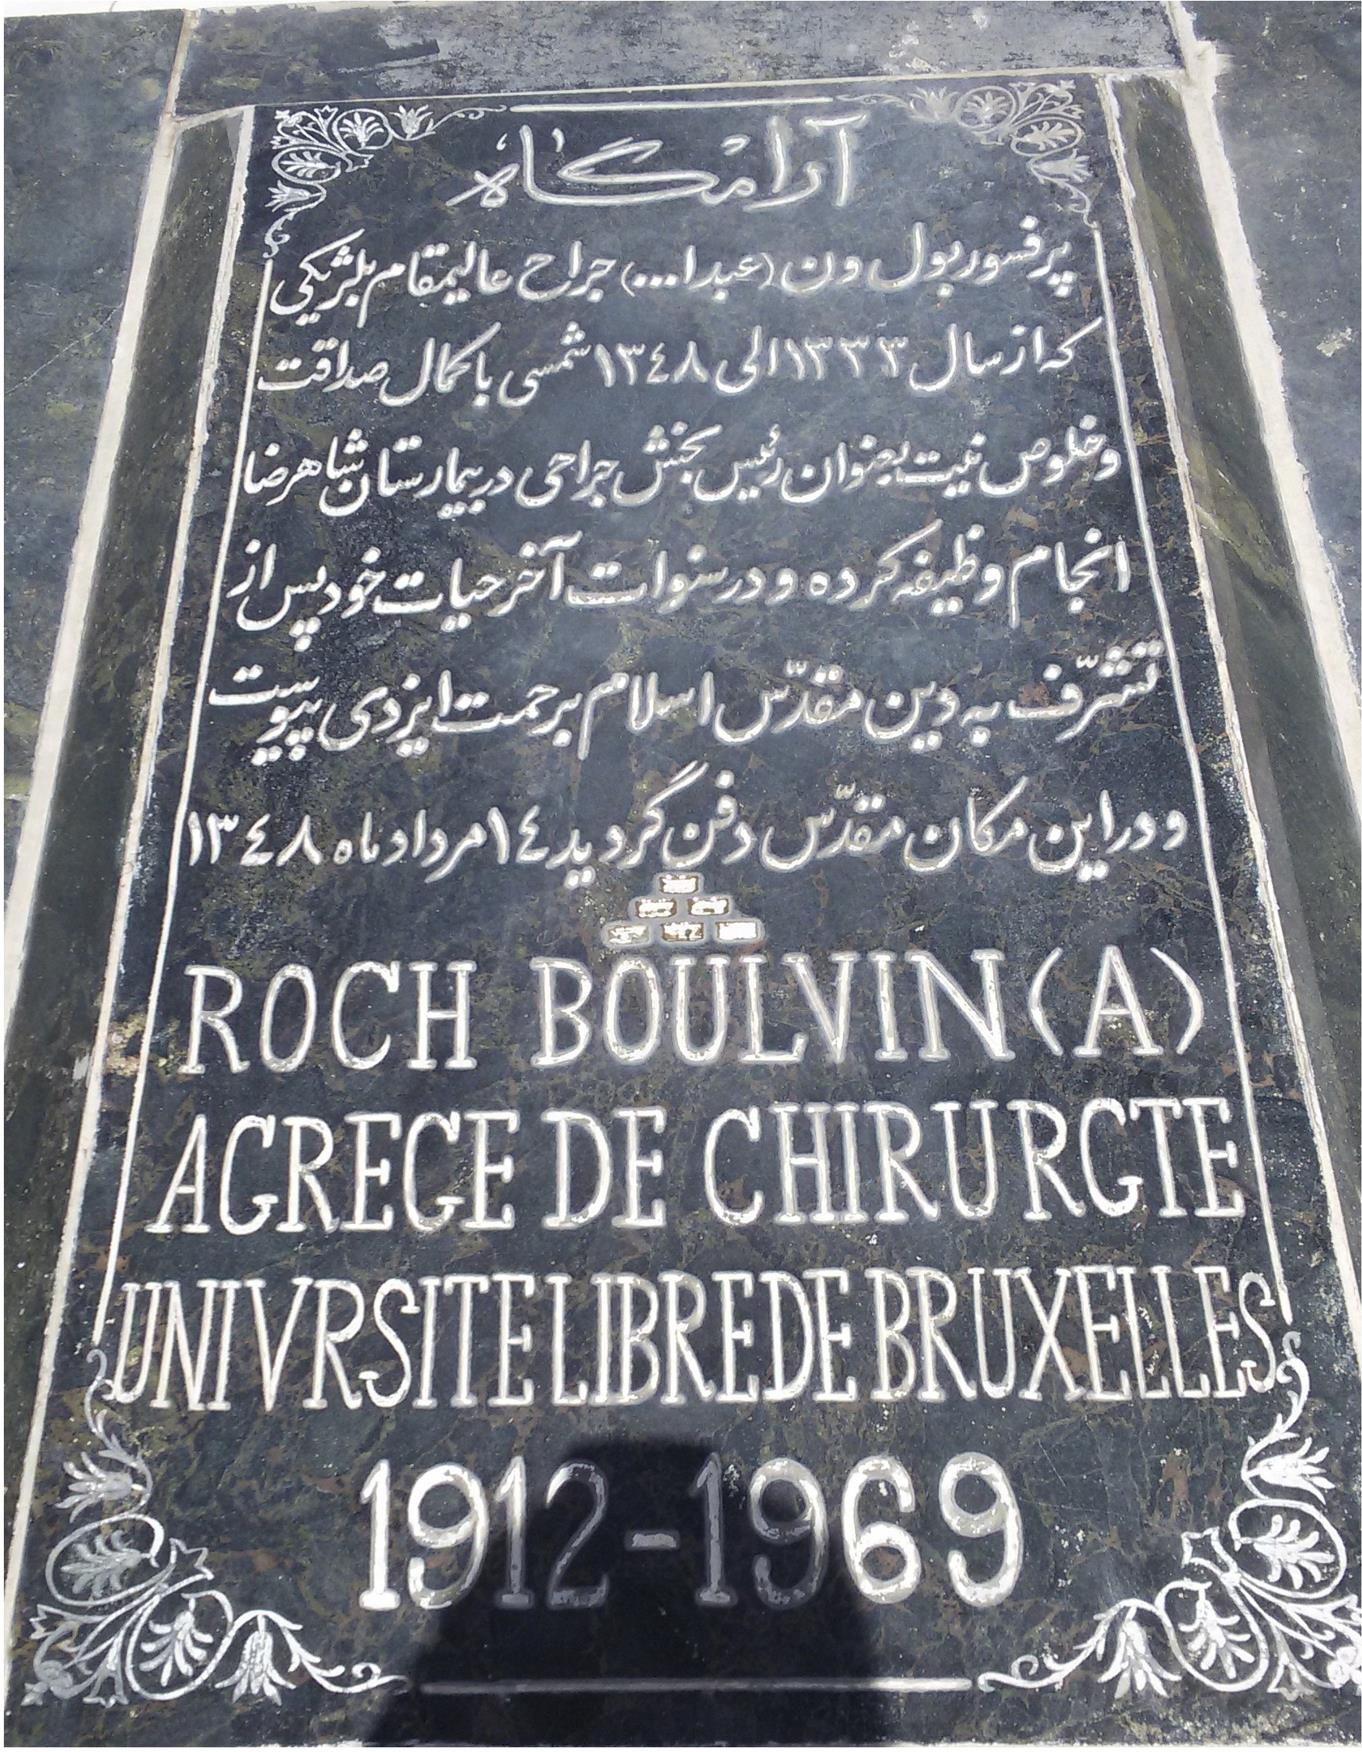 آرامگاه
پرفسور بول ون (عبدا...) جراح عالیمقام بلژیکی
که از سال ۱۳۳۳ الی ۱۳٤۸ شمسی با کمال صداقت
و خلوص نیت بعنوان رئیس بخش جراحی در بیمارستان شاهرضا
انجام وظیفه کرده و در سنوات آخر حیات خود پس از
تشرّف به دین مقدّس اسلام برحمت ایزدی پیوست
و در این مکان مقدّس دفن گردید ۱٤ مرداد ماه ۱۳٤۸
ROCH BOULVIN (A)
AGREGE DE CHIRURGTE
UNIVRSITE LIBRE DE BRUXELLES
1912-1969